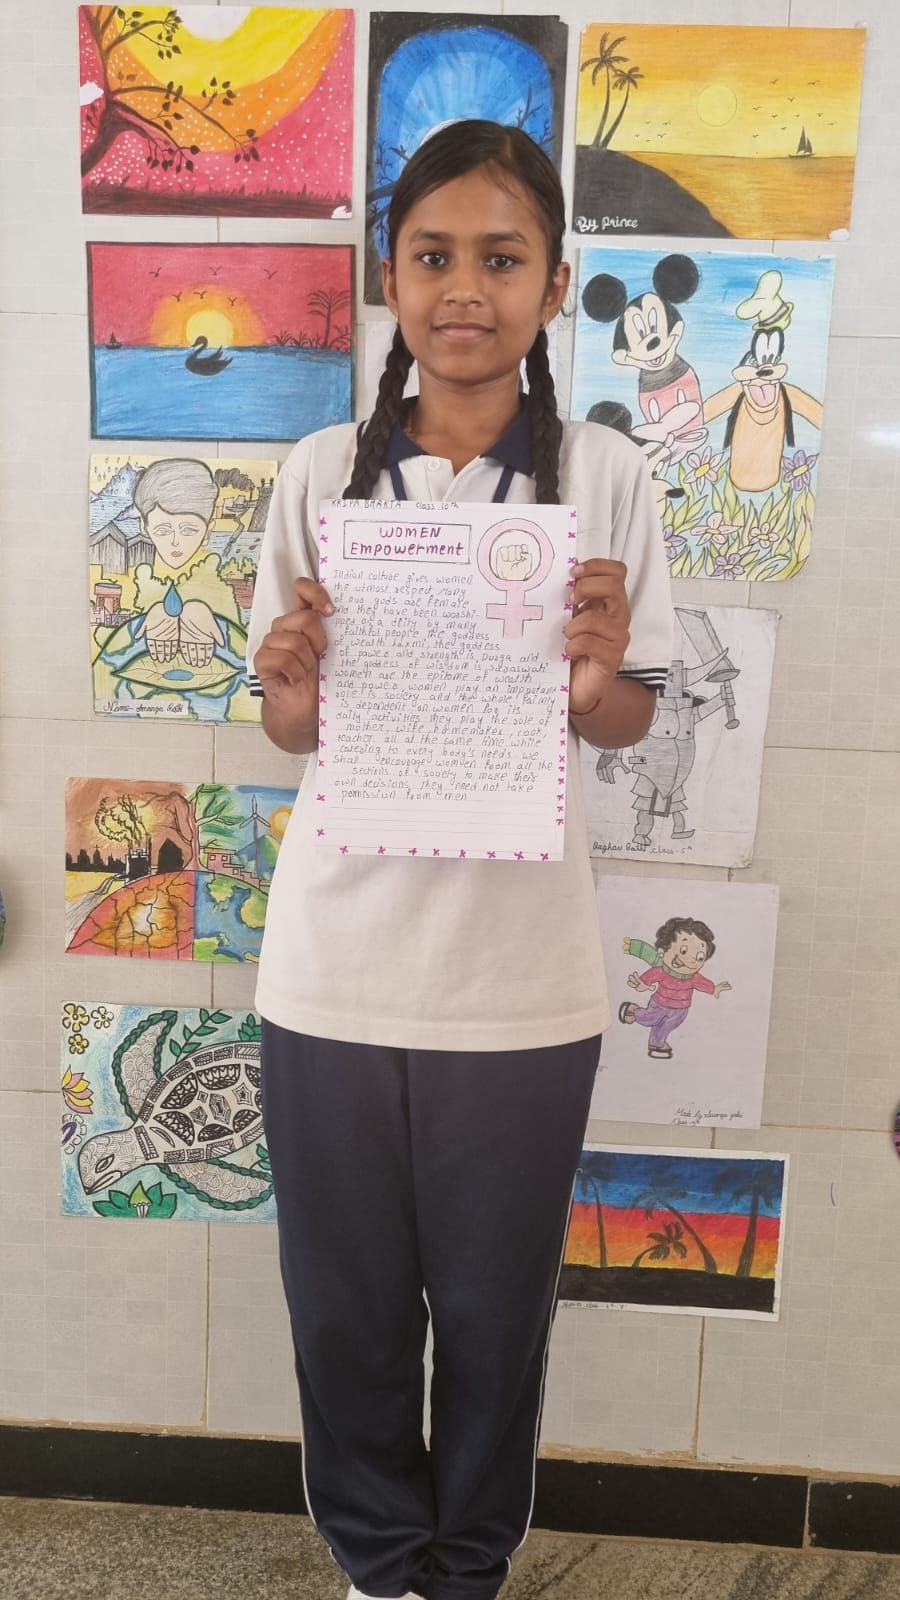 By Prince
KRIPA BHAKTA Class 10th
WOMEN
EMPOWERMENT
Indian culture gives women
the utmost respect. Many
of our gods are female
and they have been worshi-
pped as a deity by many
faithful people the goddess
of wealth Laxmi, the goddess
of power and strength is Durga and
the goddess of wisdom is Saraswati
women are the epitome of wealth
and power, women play an important
role is society and the whole family
is dependent on women for its
daily activities they play the role of
mother, wife, homemaker, cook,
teacher all at the same time while
catering to every body's needs we
shall encourage women from all the
sections of society to make their
own decisions. they need not take
permission from men.
Name-
Raghav Rathi class-5th
Made by
Class-